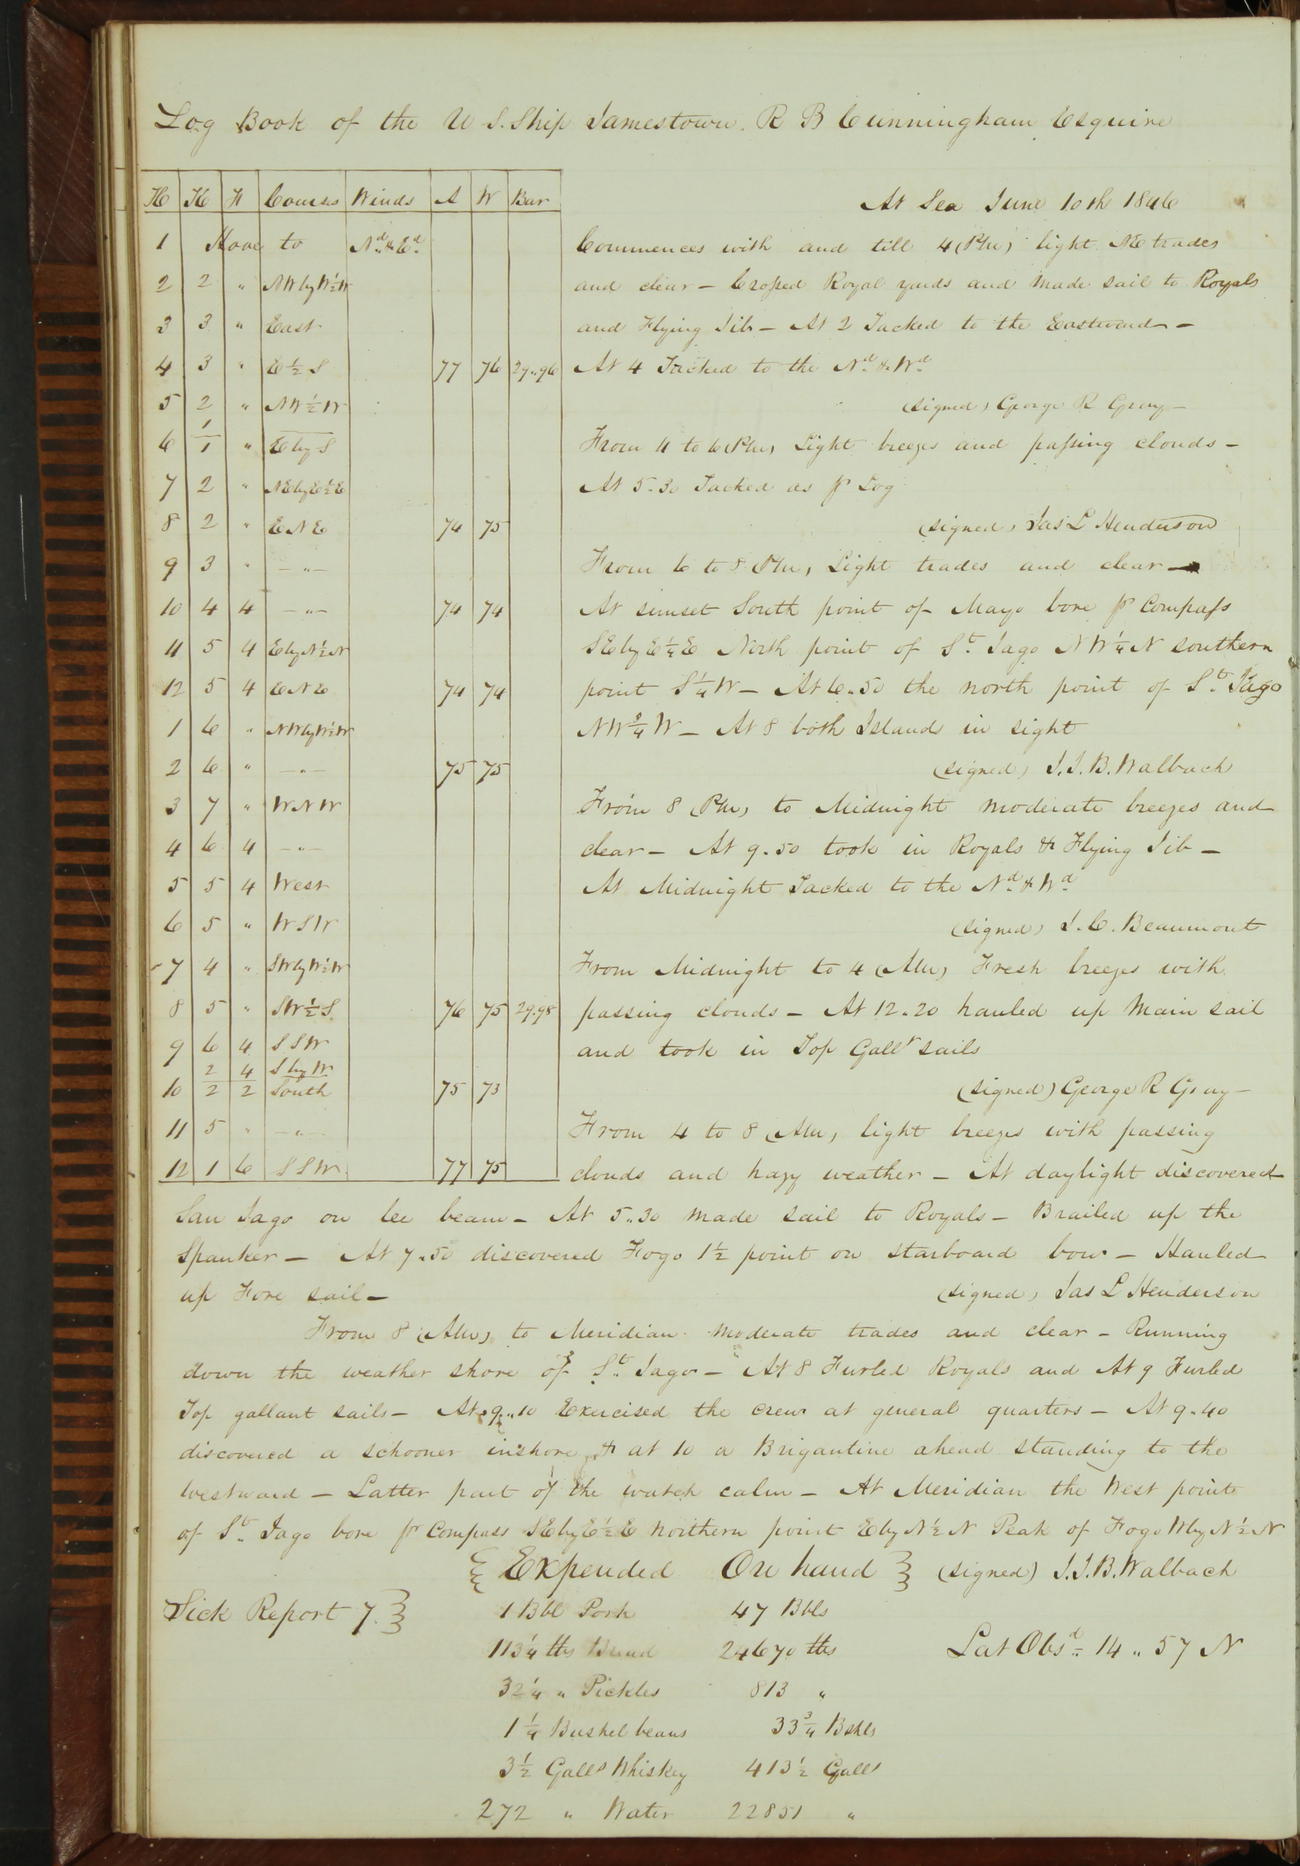 Log Book of the U.S. Ship Jamestown. R B Cunningham Esquire
H K F Courses Winds A W Bar
At Sea June 10th 1846
1 Hove to Nd & Ed
Commences with and till 4 (Pm) light NE trades
2 2 " NW by W ½ W
and clear – Crossed Royal yards and made sail to Royals
3 3 " East
and Flying Jib – At 2 Tacked to the Eastward –
4 3 " E ½ S 77 76 29.96
At 4 Tacked to the Nd & Wd
5 2 " NW ½ W
(signed) George R Gray –
6 1/1 " E by S
From 4 to 6 (Pm) Light breezes and passing clouds –
7 2 " NE by E ½ E
At 5.30 Tacked as pr Log
8 2 " ENE 74 75
(signed) Jas L Henderson
9 3 " – " –
From 6 to 8 (Pm) Light trades and clear –
10 4 4 – " – 74 74
At sunset South point of Mayo bore pr compass
11 5 4 E by N ½ N
SE by E ¼ E North point of St Jago NW ¼ N southern
12 5 4 ENE 74 74
point S ¼ W – At 6.50 the north point of St Jago
1 6 " NW by W ½ W
NW ¾ W – At 8 both Island in sight
2 6 " – " – 75 75
(signed) J.J.B. Walbach
3 7 " WNW
From 8 (Pm) to Midnight moderate breezes and
4 6 4 – " –
clear – At 9.50 took in Royals & Flying Jib –
5 5 4 West
At Midnight Tacked to the Nd & Wd
6 5 " WSW
(signed) J.C. Beaumont
7 4 " SW by W ½ W
From Midnight to 4 (Am) Fresh breezes with
8 5 " SW ½ S 76 75 29.98
passing clouds – At 12.20 hauled up Main sail
9 6 4 SSW
and took in Top Gallt sails
2 4 S by W
10 2 2 South 75 73
(signed) George R Gray –
11 5 " – " –
From 4 to 8 (Am) light breezes with passing
12 1 6 SSW 77 75
clouds and hazy weather – At daylight discovered
San Jago on lee beam – At 5.30 made sail to Royals – Brailed up the
Spanker – At 7.50 discovered Fogo 1½ point on starboard bow – Hauled
up Fore sail –
(signed) Jas L Henderson
From 8 (Am) to Meridian moderate trades and clear – Running
down the weather shore of St Jago – At 8 Furled Royals and At 9 Furled
Top gallant sails – At 9.10 Exercised the crew at general quarters – At 9.40
discovered a schooner inshore & at 10 a Brigantine ahead standing to the
Westward – Latter part of the watch calm – At Meridian the West point
of St Jago bore pr compass SE by E ½ E Northern point E by N ½ N Peak of Fogo W by N ½ N
Expended On hand
(signed) J.J.B. Walbach
Sick Report 7.
1 Bbl Pork 47 Bbls
113¼ lbs Bread 24670 lbs
Lat Obsd 14 " 57 N
32¼ " Pickles 813 "
1¼ Bushel beans 33¾ Bshls
3½ Galls Whiskey 413½ Galls
272 " Water 22851 "